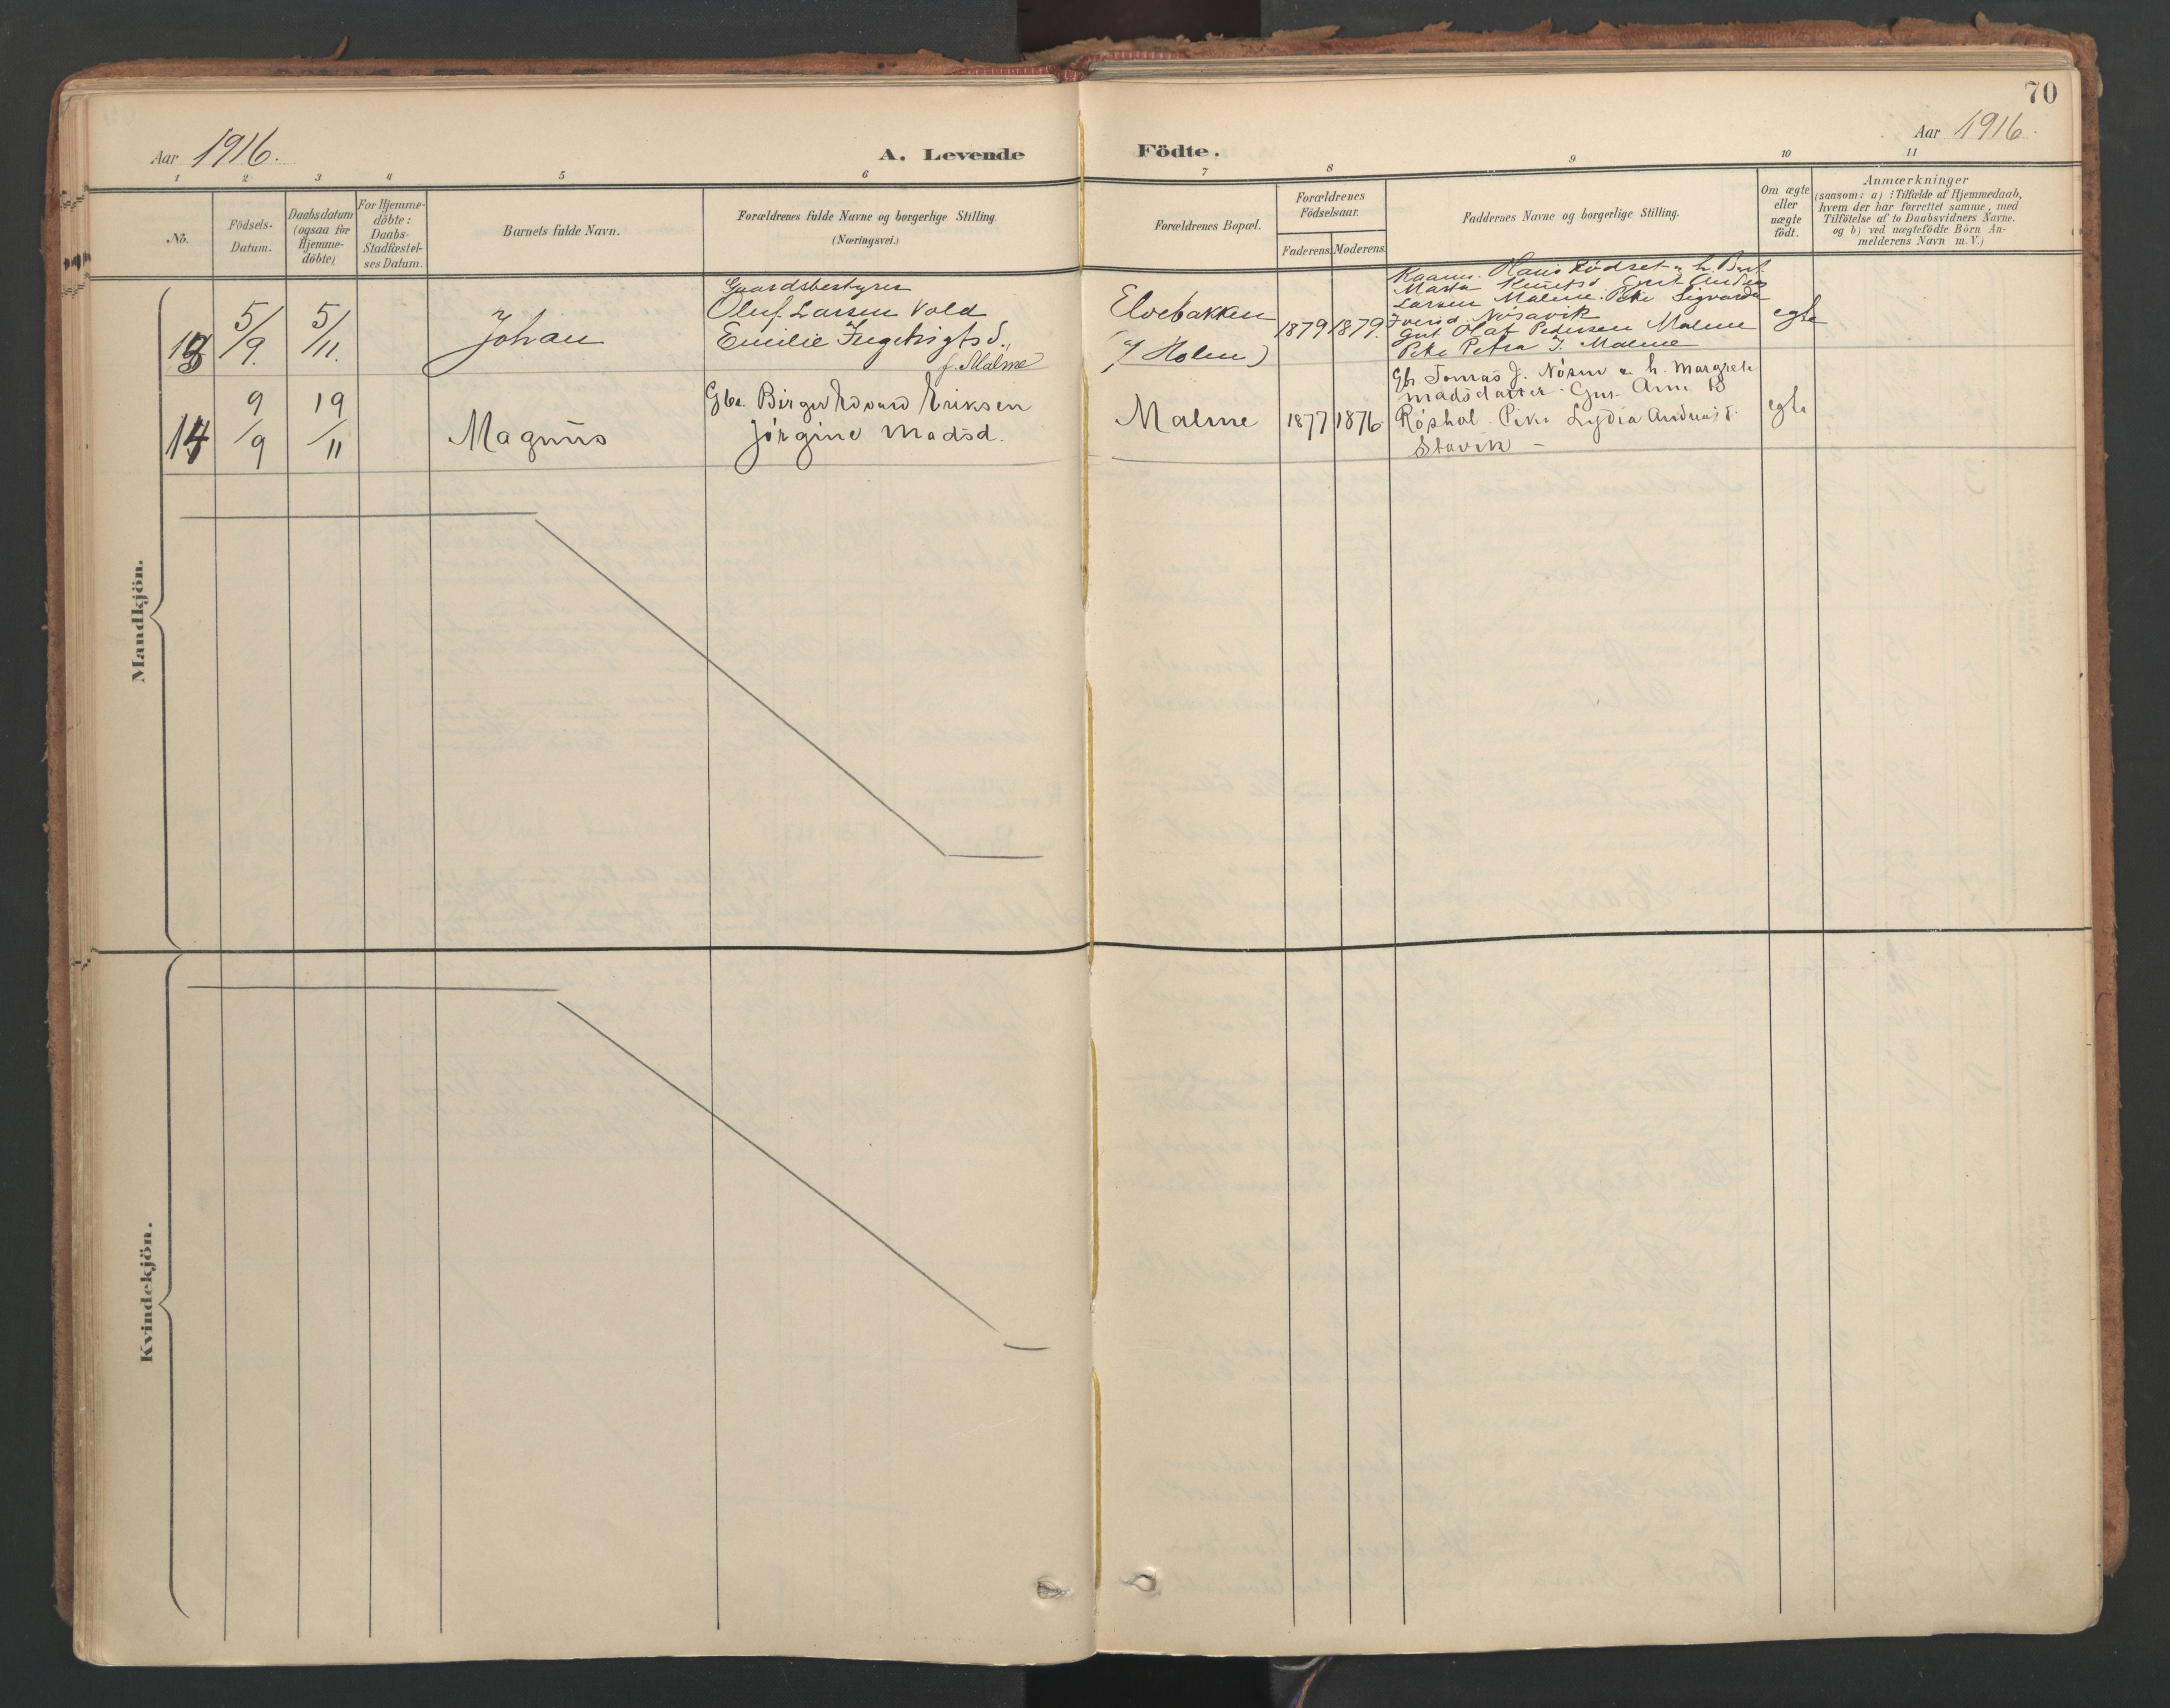 70
Aar 1916.
A. Levende Födte.
Aar 1916.
1 2 3 4 5 6 7 8 9 10 11
No.
Födsels-
Datum.
Daabsdatum
(ogsaa for
Hjemme-
döbte)
For Hjemme-
döbte:
Daabs-
Stadfæstel-
ses Datum.
Barnets fulde Navn.
Forældrenes fulde Navne og borgerlige Stilling.
(Næringsvei.)
Forældrenes Bopæl.
Forældrenes
Födselsaar.
Faderens. Moderens.
Faddernes Navne og borgerlige Stilling.
Om ægte
eller
uægte
födt.
Anmærkninger
(saasom: a) i Tilfælde af Hjemmedaab,
hvem der har forrettet samme, med
Tilföielse af to Daabsvidners Navne.
og b) ved uægtefödte Börn An-
melderens Navn m. V.)
Mandkjön.
13
5/9.
5/11.
Johan
Gaardsbestyrer
Oluf Larsen Vold
Emilie Ingebrigtsd.,
f. Malme
Elvebakken
(Holm)
1879 1879.
Hans Rödset h.
Marta Knutsd. Gut Anders
Larsen Malme. Pike Sigvarda
Iversd. Nösavik
Gut Olaf Pedersen Malme
Pike Petra J. Malme
egte
14
9/9
19/11
Magnus
Gbr. Birger Edvard Eriksen
Jørgine Madsd.
Malme
1877 1876.
Gbr. Tomas J. Nösen h. Margrete
Madsdatter. Gut Arne B
Røshol. Pike Lydia Andreasd.
Stavik
egte
Kvindekjön.